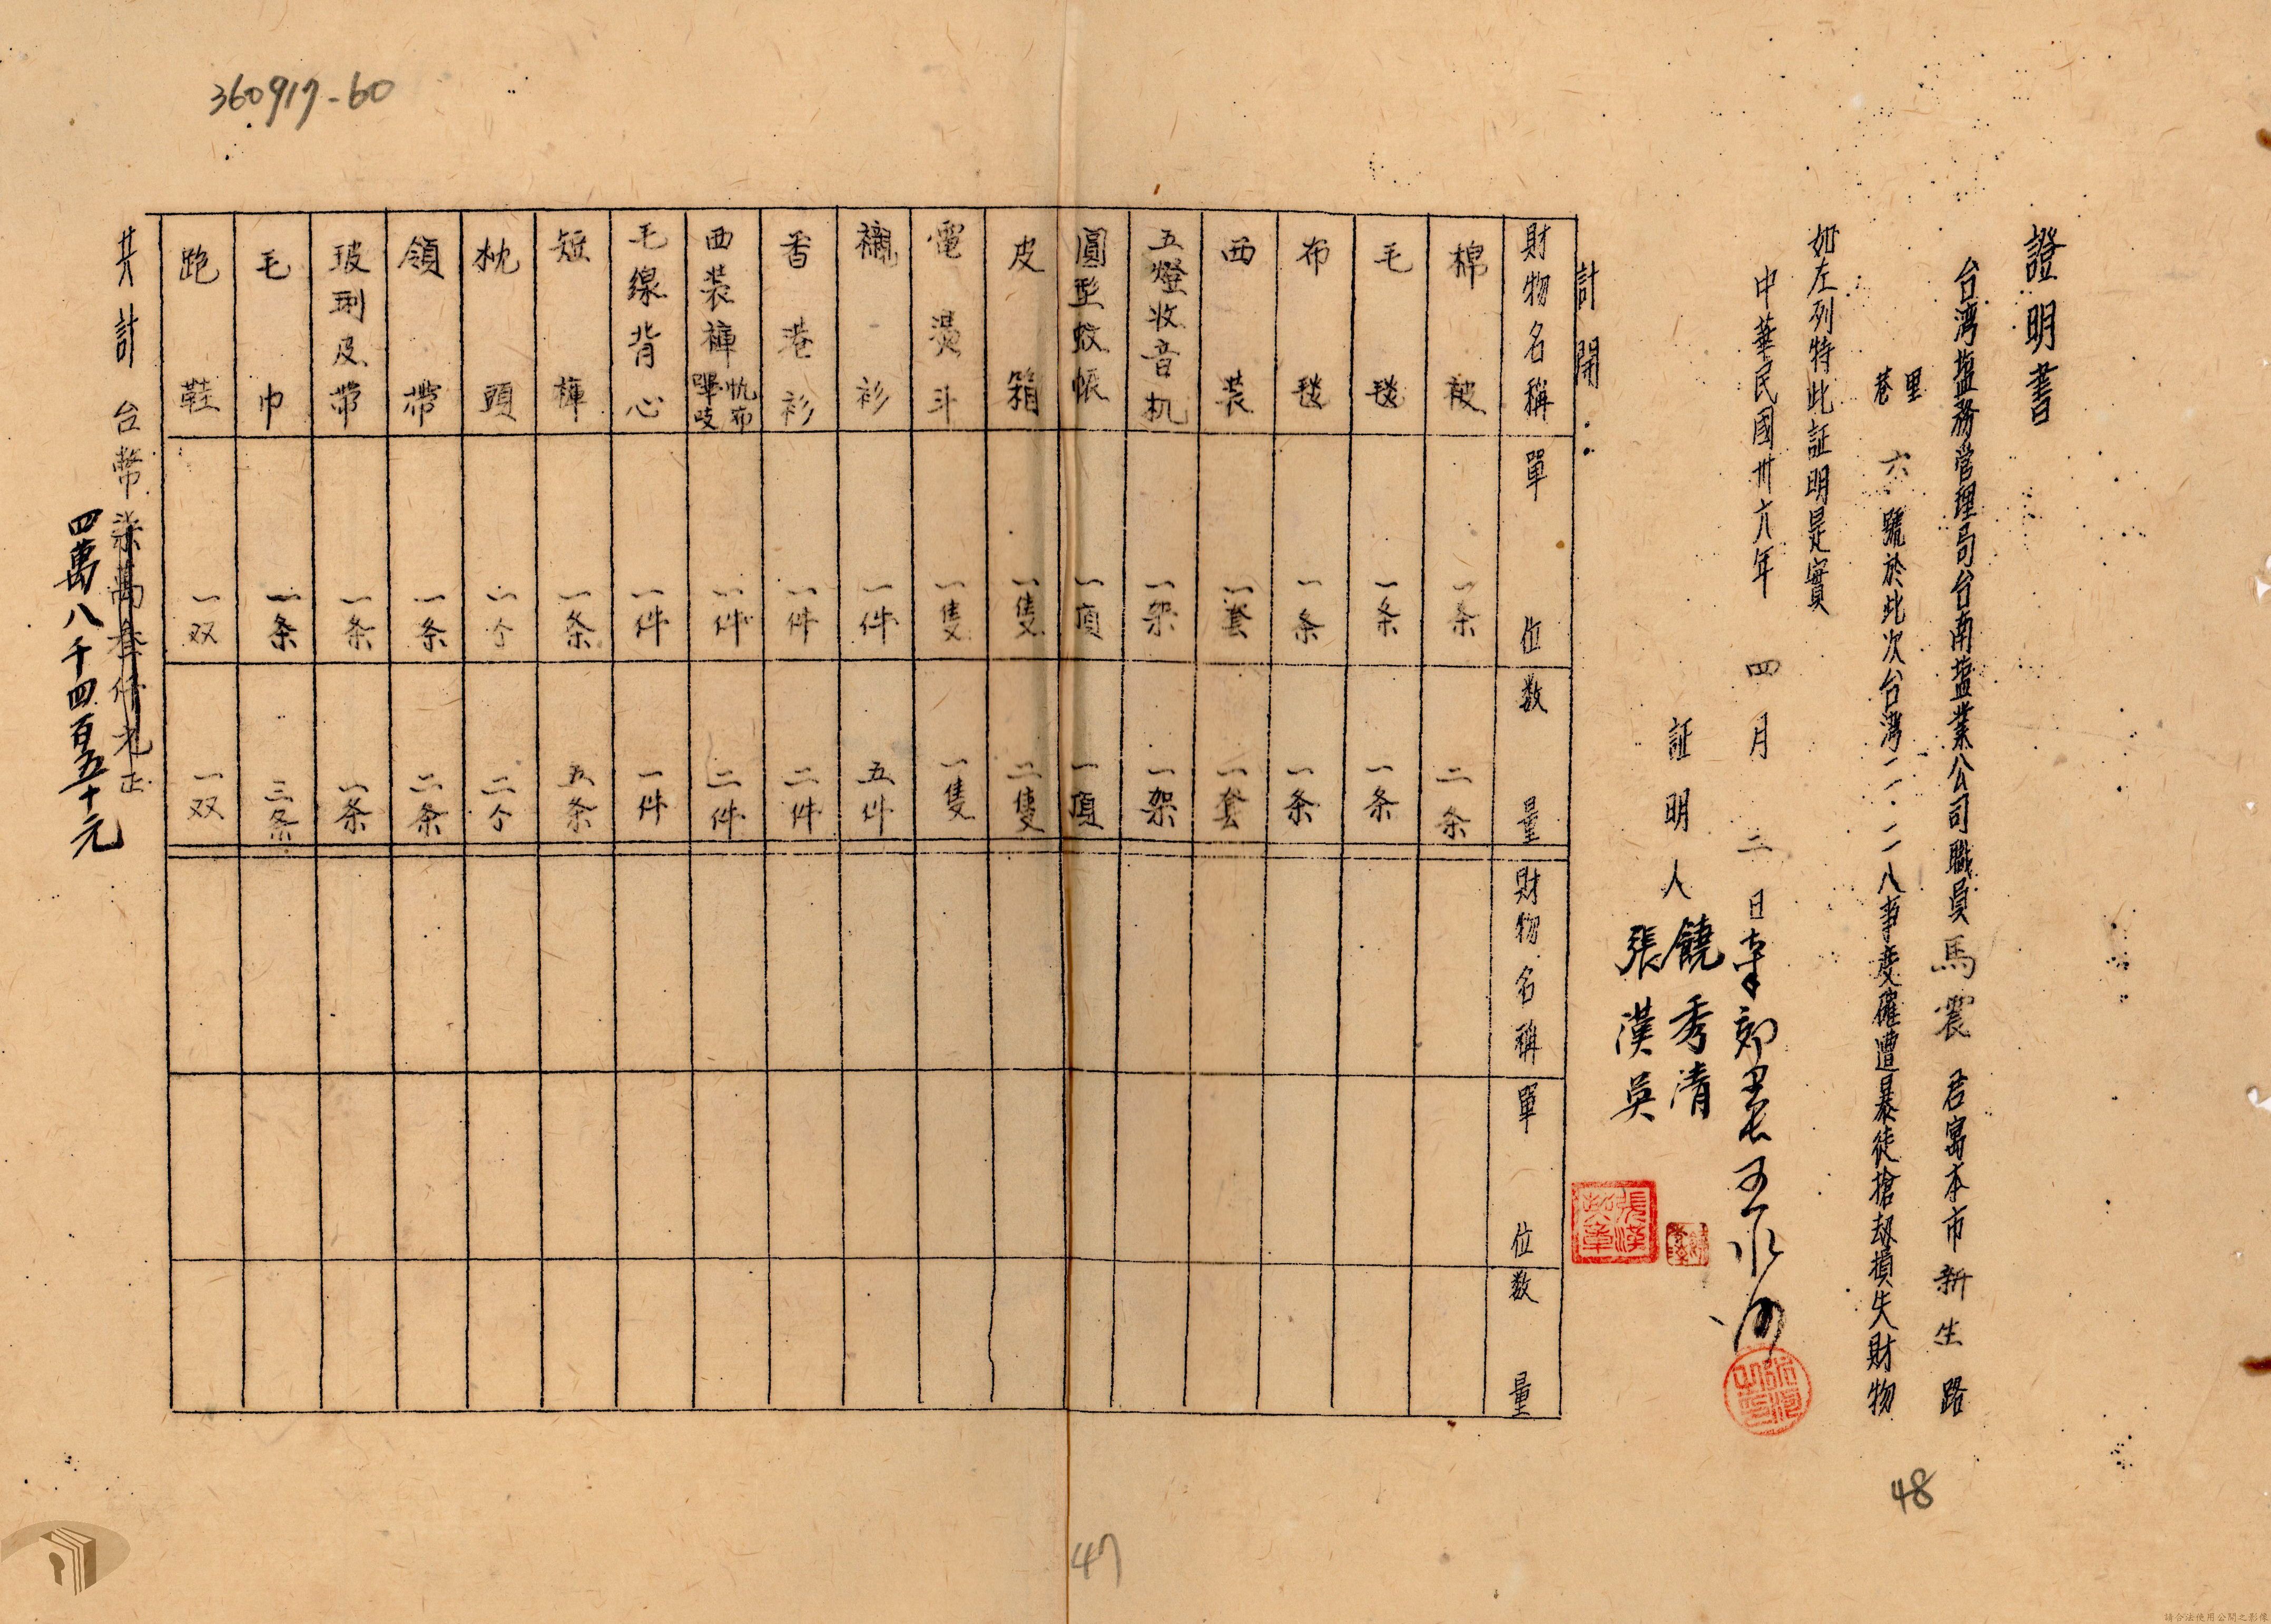 360917-60
證明書
台灣塩務管理局台南塩業公司職員馬震君寓本市新生路
里
巷
六號於此次台灣二·二八事変確遭暴徒搶刼損失財物
如左列特此証明是實
中華民國卅六年 四月 三日
証明人 饒秀清
張漢吳
計開:
財物名稱 單位 数量 財物名稱 單位 数量
棉被 一条 二条
毛毯 一条 一条
布毯 一条 一条
西装 一套 一套
五燈收音机 一架 一架
圓型蚊帳 一頂 一頂
皮箱 一隻 二隻
電燙斗 一隻 一隻
襯衫 一件 五件
香港衫 一件 二件
西装褲 帆布 嗶吱 一件 二件
毛線背心 一件 一件
短褲 一条 五条
枕頭 一个 二个
領帶 一条 二条
玻琍皮带 一条 一条
毛巾 一条 三条
跑鞋 一双 一双
共計 台幣柒萬叁仟元正
四萬八千四百五十元
47
48
請合法使用公開之影像